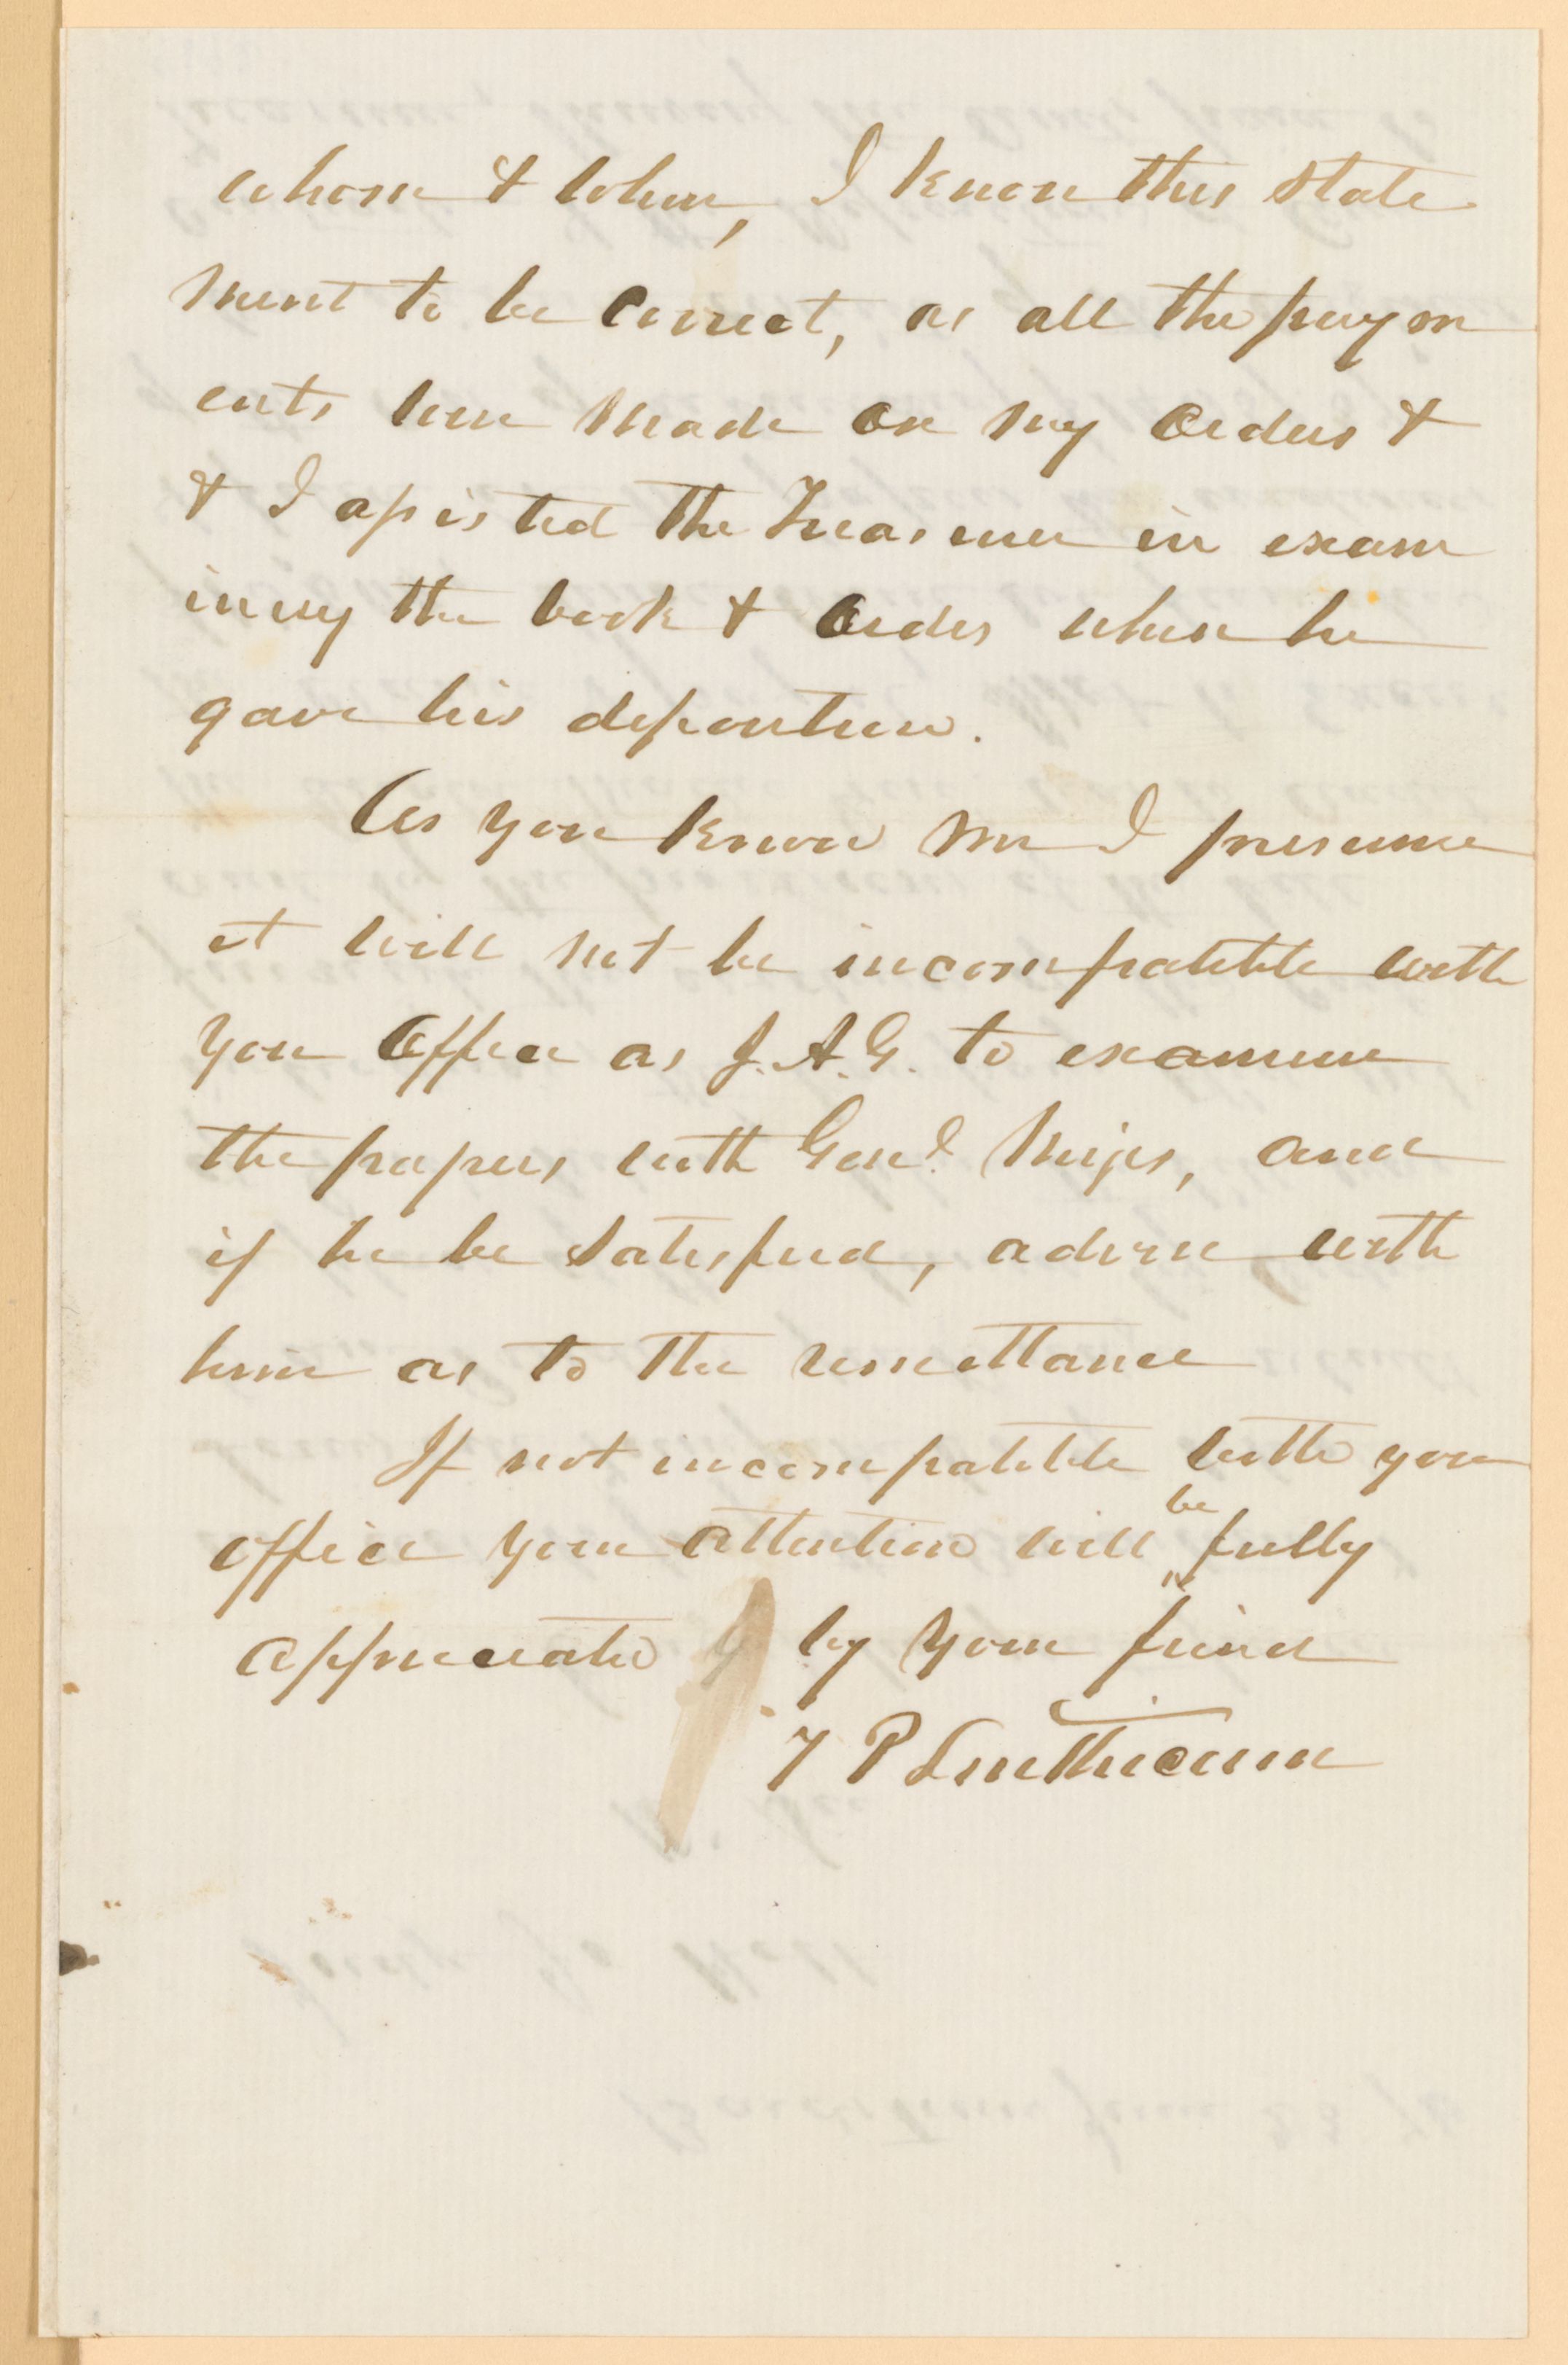 whom & when, I know this state
ment to be correct, as all the paym
ents were made on my orders &
& I assisted the Treasurer in exam
ining the book & orders when he
gave his deposition.
As you know me I presume
it will not be incompatible with
your office as J.A.G. to examine
the papers with Genl. Meigs, and
if he be satisfied, advise with
him as to the remittance
If not incompatible with your
office your attention will be fully
appreciated by your friend
T P Linthicum